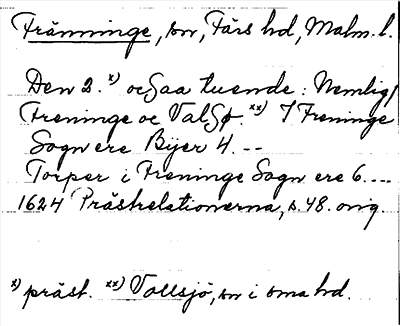 Fränninge, sn, Färs hd, Malm. l.
Den 2. x) ocsaa tuende: Nemlig/
Freninge oc ValSø. xx) I Freninge
Sogn ere Byer 4. --
Torper i Freninge Sogn ere 6. ---
1624 Prästrelationerna, s. 48. orig
x) präst. xx) Vollsjö, sn i sma hd.